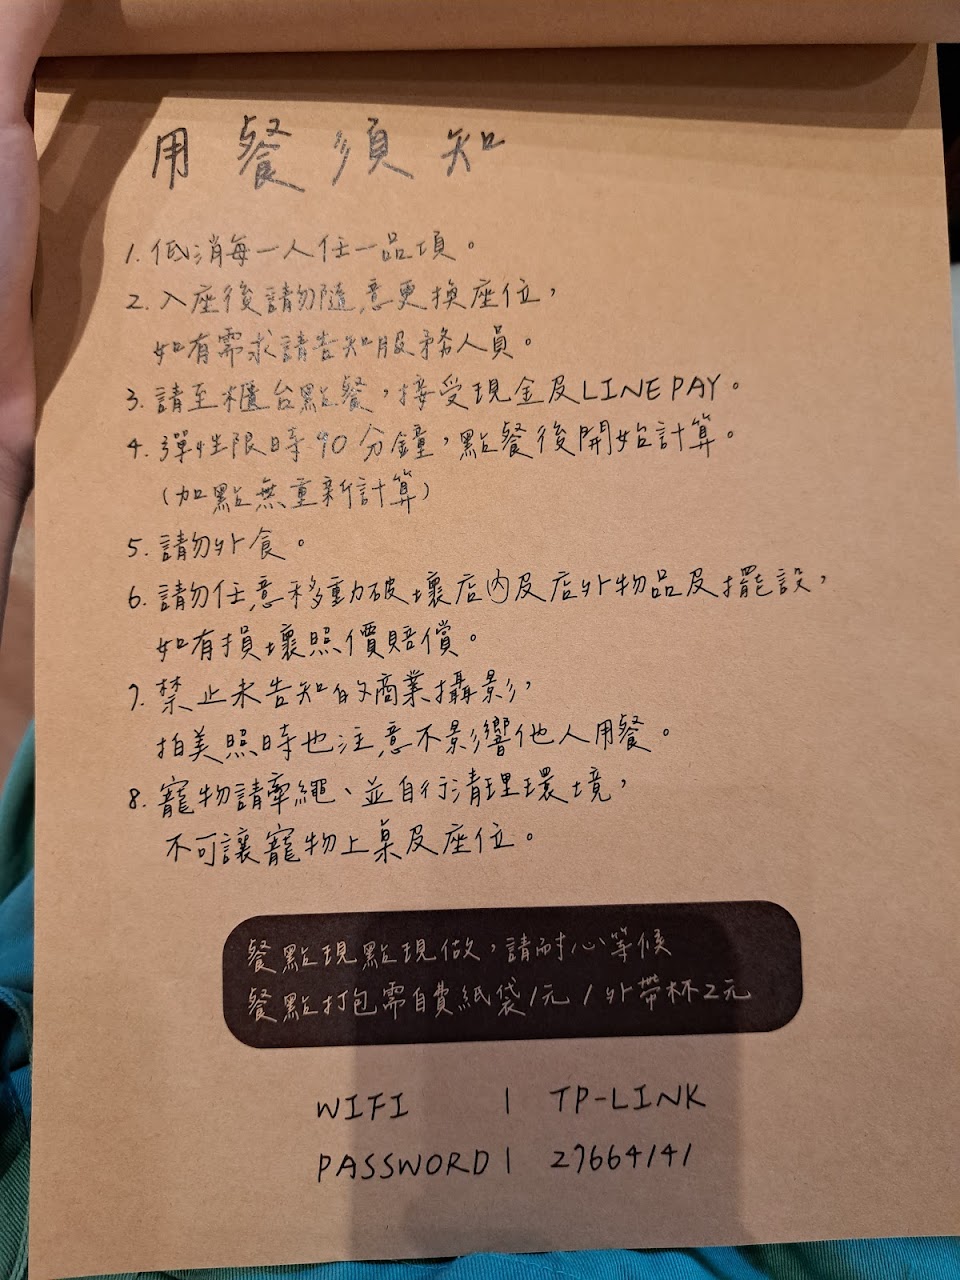 用餐須知
1. 低消每一人任一品項。
2. 入座後請勿隨意更換座位，
如有需求請告知服務人員。
3. 請至櫃台點餐，接受現金及LINE PAY。
4. 彈性限時90分鐘，點餐後開始計算。
（加點無重新計算）
5. 請勿外食。
6. 請勿任意移動破壞店內及店外物品及擺設，
如有損壞照價賠償。
7. 禁止未告知的商業攝影，
拍美照時也注意不影響他人用餐。
8. 寵物請牽繩、並自行清理環境，
不可讓寵物上桌及座位。
餐點現點現做，請耐心等候
餐點打包需自費紙袋1元 / 外帶杯2元
WIFI | TP-LINK
PASSWORD | 27664141